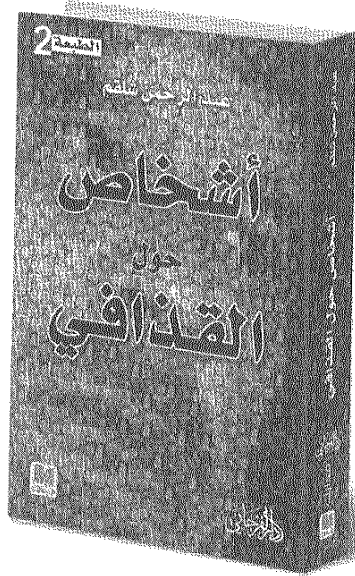 الطبعة 2
عبد الرحمن شلقم
أشخاص
حول
القذافي
دار الفرجاني
عبد الرحمن شلقم
أشخاص حول القذافي